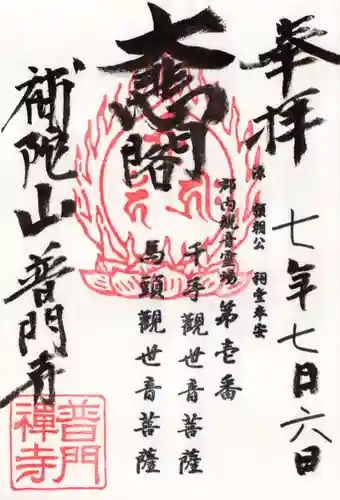 奉拝
七年七月六日
源 頼朝公 祠堂奉安
郡内観音霊場第壱番
千手観世音菩薩
馬頭観世音菩薩
大悲閣
補陀山普門寺
普門禅寺